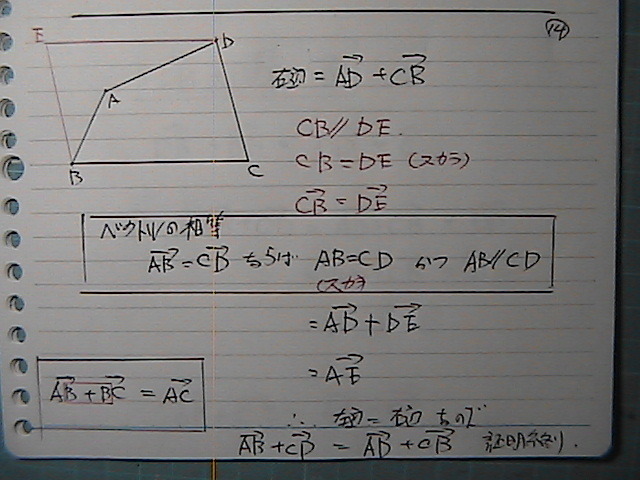 ⑭
E
D
A
B
C
右辺 = AD + CB
CB // DE.
CB = DE (スカラ)
CB = DE
ベクトルの相等
AB = CD ならば AB=CD かつ AB//CD
(スカラ)
= AD + DE
= AE
AB + BC = AC
∴ 左辺 = 右辺 なので
AB + CD = AD + CB 証明終り.